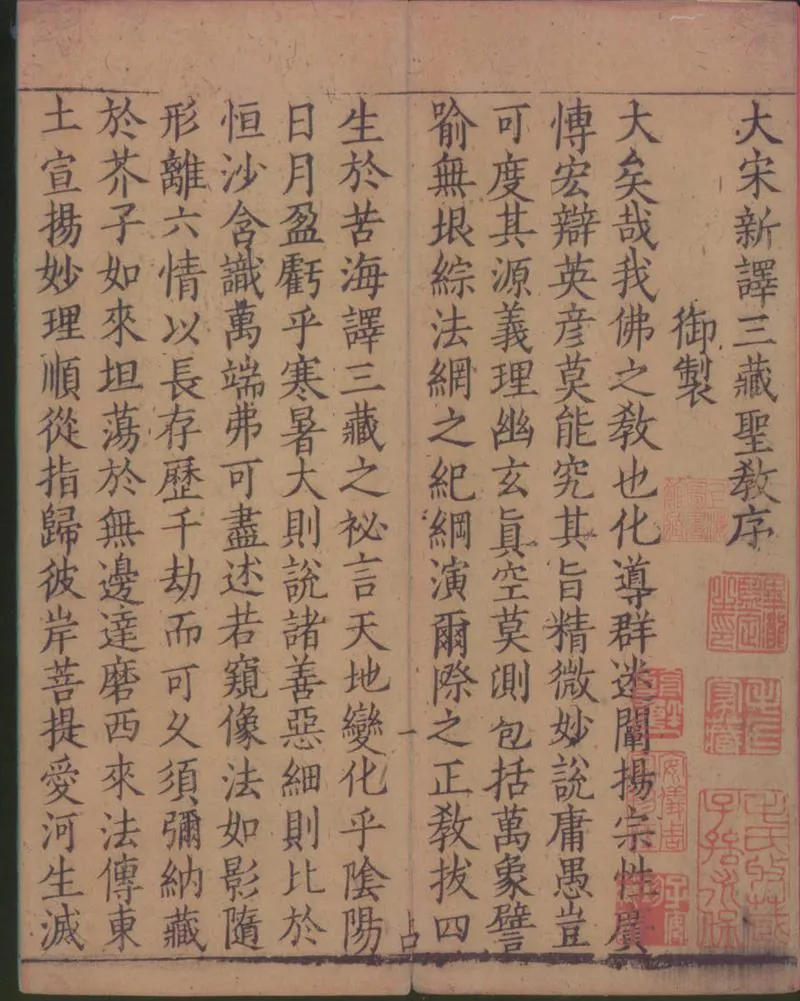 大宋新譯三藏聖教序
御製
大矣哉我佛之教也化導群迷闡揚宗性廣
愽宏辯英彦莫能究其旨精微妙說庸愚豈
可度其源義理幽玄眞空莫測包括萬象譬
喻無垠綜法網之紀綱演爾際之正教拔四
一
占
生於苦海譯三藏之祕言天地變化乎陰陽
日月盈虧乎寒暑大則說諸善惡細則比於
恒沙含識萬端弗可盡述若窺像法如影隨
形離六情以長存歷千劫而可久須彌納藏
於芥子如來坦蕩於無邊達磨西來法傳東
土宣揚妙理順從指歸彼岸菩提愛河生滅